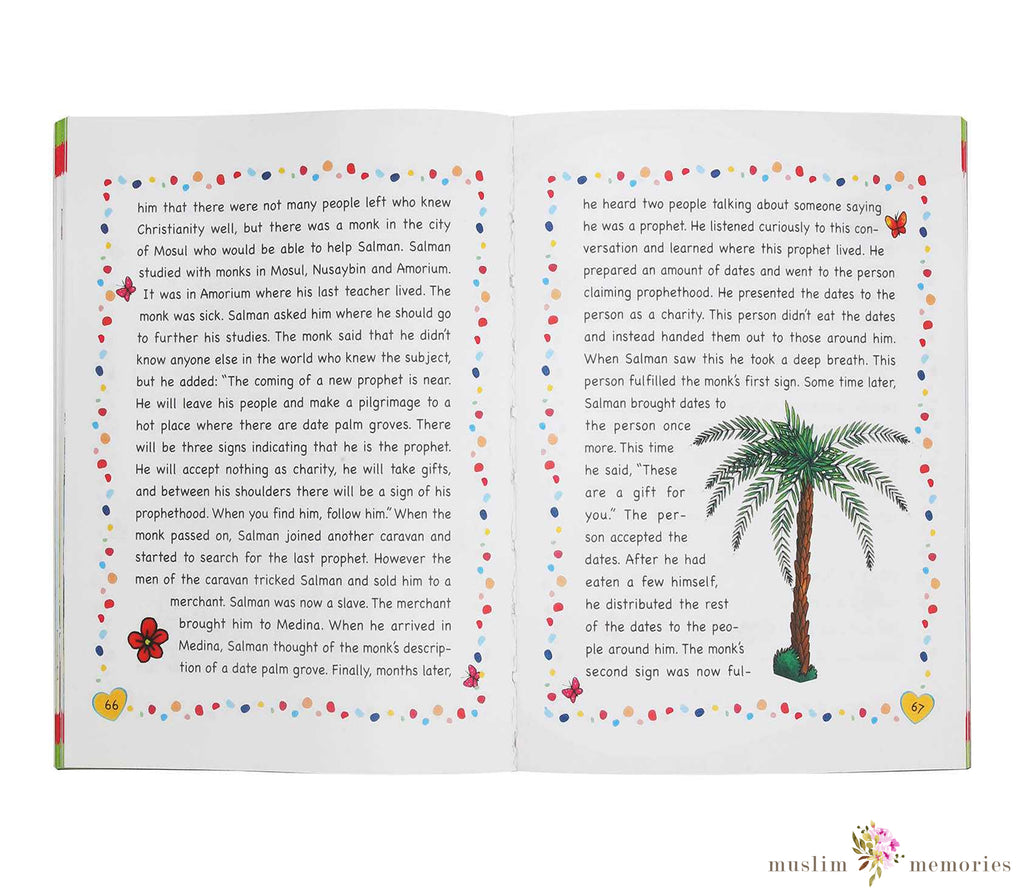 him that there were not many people left who knew
Christianity well, but there was a monk in the city
of Mosul who would be able to help Salman. Salman
studied with monks in Mosul, Nusaybin and Amorium.
It was in Amorium where his last teacher lived. The
monk was sick. Salman asked him where he should go
to further his studies. The monk said that he didn't
know anyone else in the world who knew the subject,
but he added: "The coming of a new prophet is near.
He will leave his people and make a pilgrimage to a
hot place where there are date palm groves. There
will be three signs indicating that he is the prophet.
He will accept nothing as charity, he will take gifts,
and between his shoulders there will be a sign of his
prophethood. When you find him, follow him." When the
monk passed on, Salman joined another caravan and
started to search for the last prophet. However the
men of the caravan tricked Salman and sold him to a
merchant. Salman was now a slave. The merchant
brought him to Medina. When he arrived in
Medina, Salman thought of the monk's descrip-
tion of a date palm grove. Finally, months later,
66
he heard two people talking about someone saying
he was a prophet. He listened curiously to this con-
versation and learned where this prophet lived. He
prepared an amount of dates and went to the person
claiming prophethood. He presented the dates to the
person as a charity. This person didn't eat the dates
and instead handed them out to those around him.
When Salman saw this he took a deep breath. This
person fulfilled the monk's first sign. Some time later,
Salman brought dates to
the person once
more. This time
he said, "These
are a gift for
you." The per-
son accepted the
dates. After he had
eaten a few himself,
he distributed the rest
of the dates to the peo-
ple around him. The monk's
second sign was now ful-
67
muslim memories